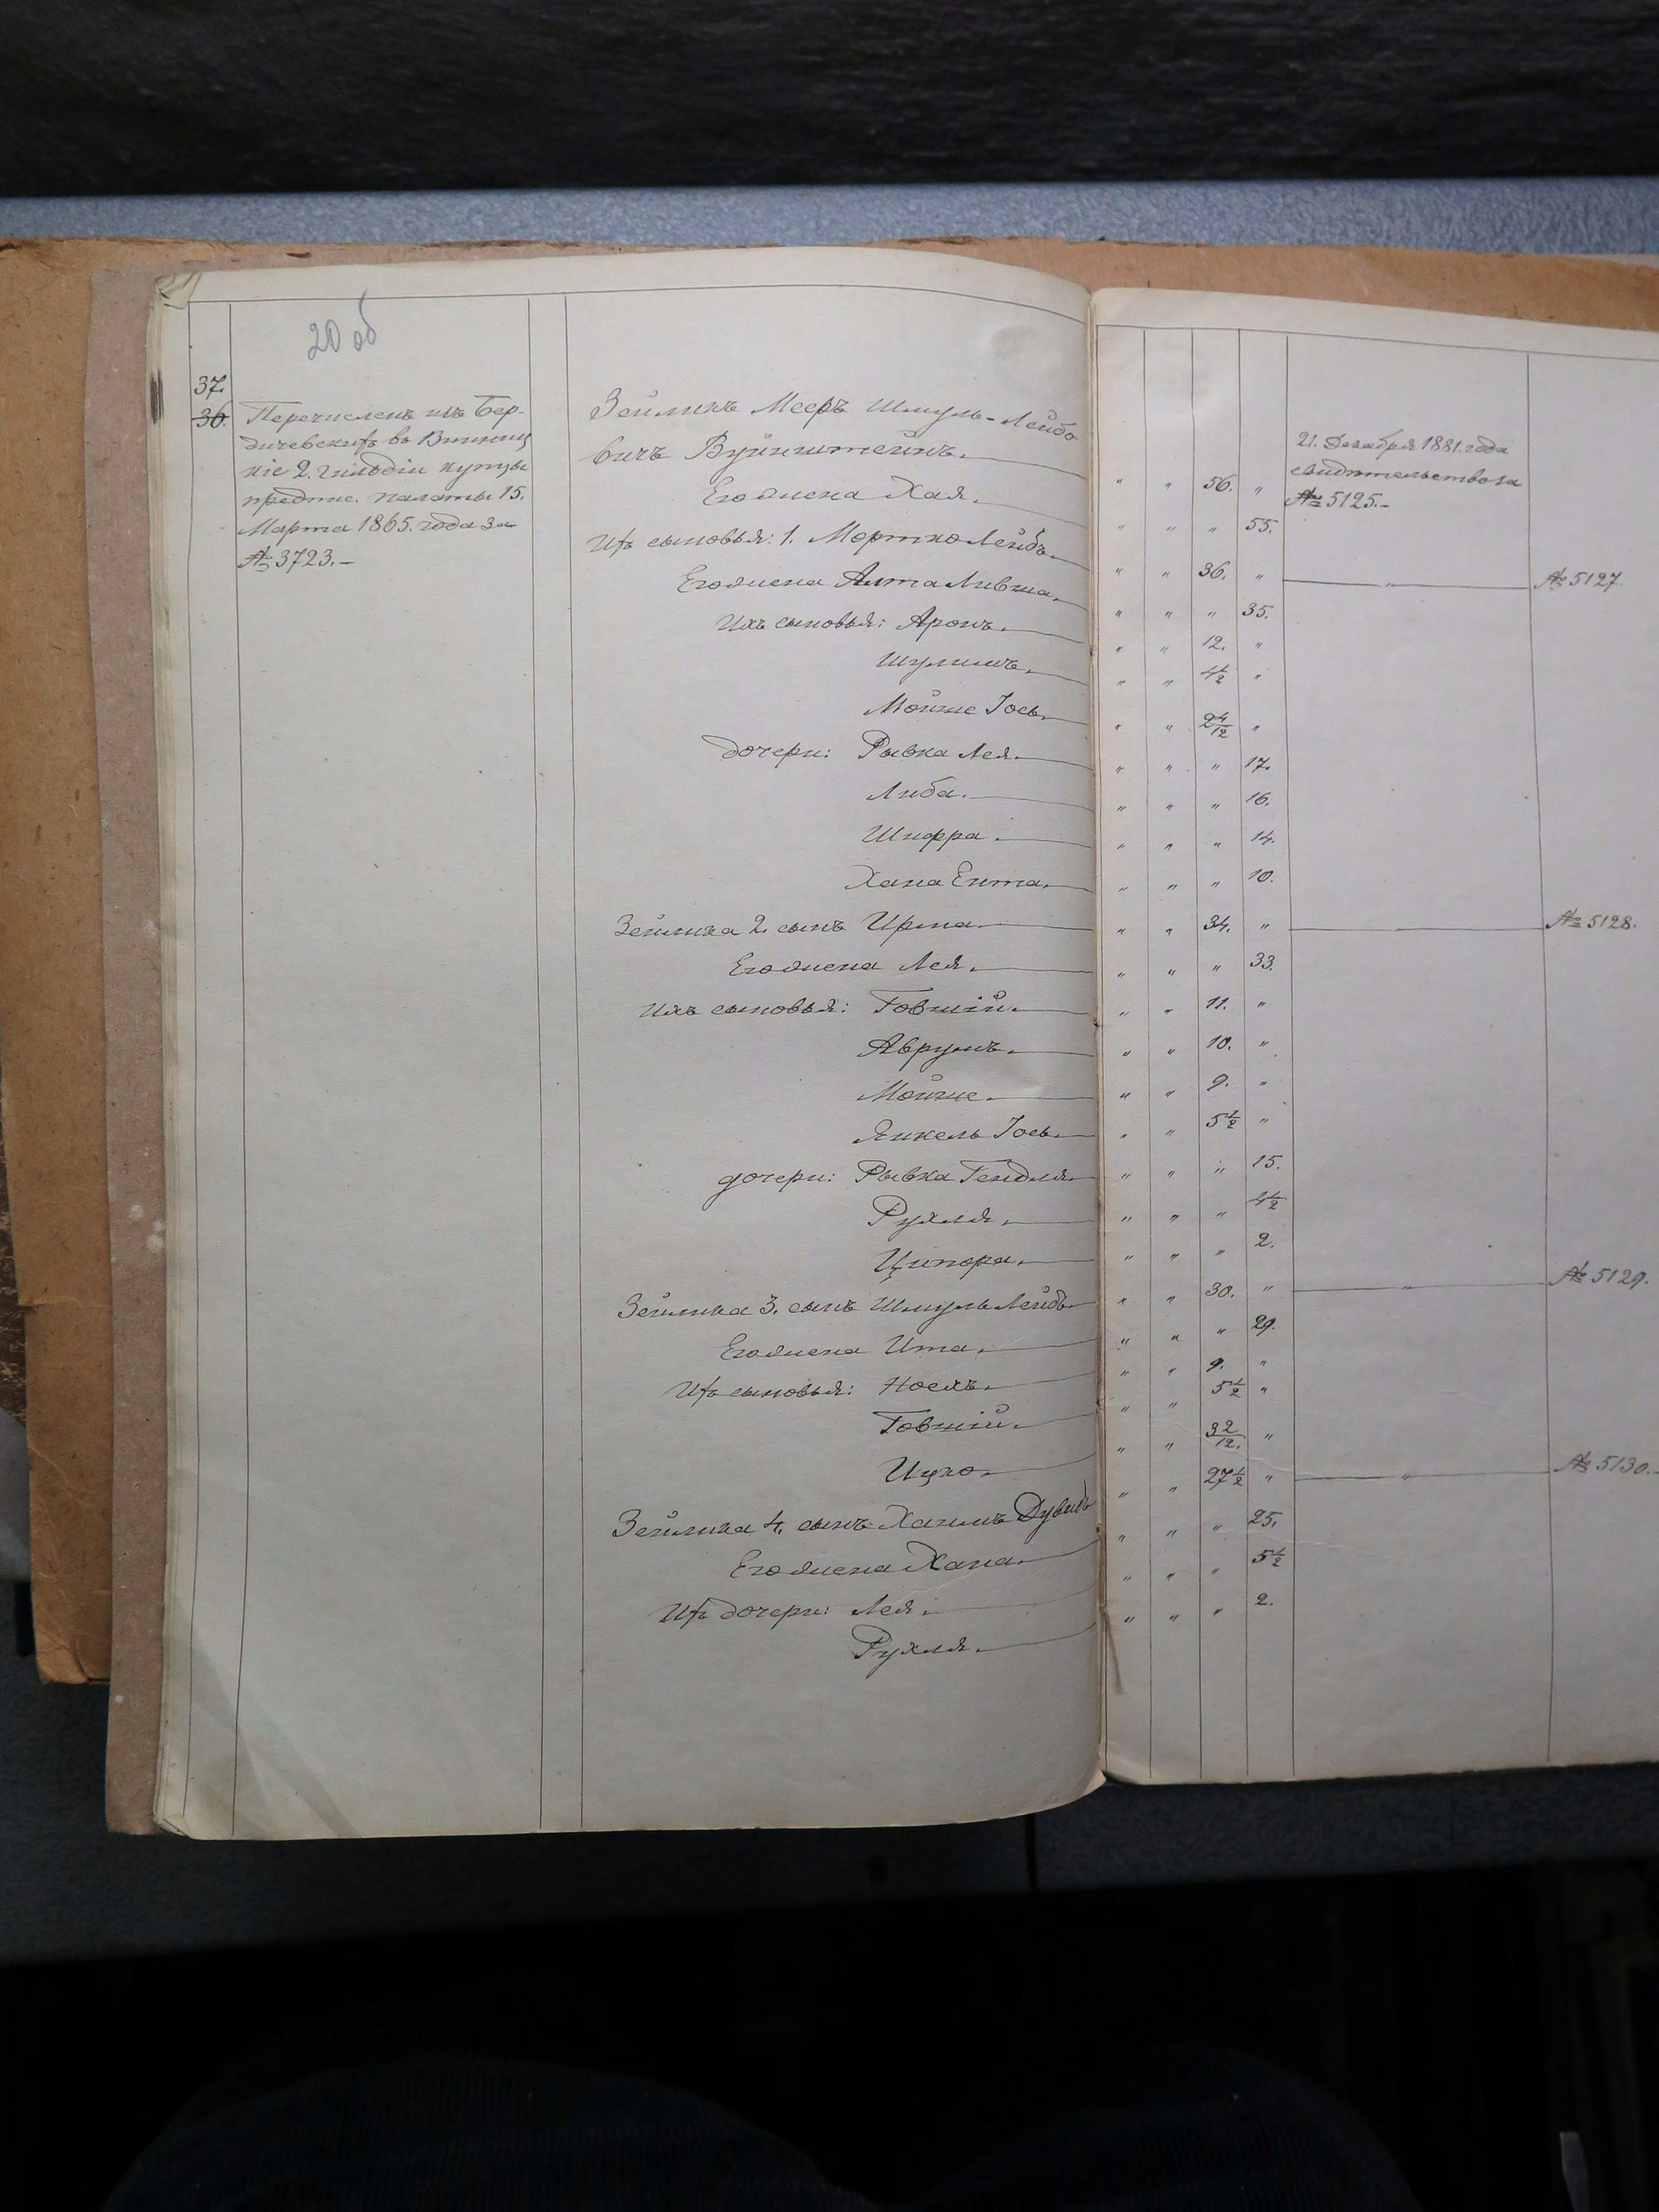 20 об
37.
36.
Перечисленъ изъ Бер-
дичевскихъ въ Винниц
кіе 2. гильдіи купцы
предпис. палаты 15.
Марта 1865. года за
№ 3723.-
Зейликъ Мееръ Шмуль-Лейбо
вичъ Вуйнштейнъ. " " 56. "
21. Декабря 1881. года
свидѣтельство за
№ 5125.-
Его жена Хая. " " " 55.
Ихъ сыновья: 1. Мортко Лейбъ. " " 36. " " № 5127.
Его жена Алта Ливша. " " " 35.
Ихъ сыновья: Аронъ. " " 12. "
Шулимъ. " " 4 1/2 "
Мойше Іось. " " 2 4/12 "
дочери: Рывка Лея. " " " 17.
Либа. " " " 16.
Шифра. " " " 14.
Хана Ента. " " " 10.
Зейлика 2. сынъ Ирма. " " 34. " № 5128.
Его жена Лея. " " " 33.
Ихъ сыновья: Говшій. " " 11. "
Аврумъ. " " 10. "
Мойше. " " 9. "
Янкель Іось. " " 5 1/2 "
дочери: Рывка Гендля. " " " 15.
Рухля. " " " 4 1/2
Ципора. " " " 2.
Зейлика 3. сынъ Шмуль Лейбъ. " " 30. " " № 5129.
Его жена Ита. " " " 29.
Ихъ сыновья: Носхъ. " " 9. "
Говшій. " " 5 1/2 "
Ицко. " " 3 2/12. "
Зейлика 4. сынъ Хаимъ Дувидъ " " 27 1/2 " " № 5130.-
Его жена Хана. " " " 25.
Ихъ дочери: Лея. " " " 5 1/2
Рухля. " " " 2.